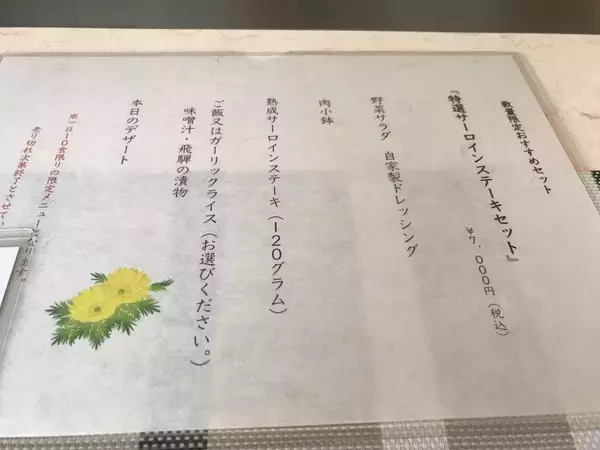 数量限定おすすめセット
『特選サーロインステーキセット』
￥7,000円(税込)
野菜サラダ 自家製ドレッシング
肉小鉢
熟成サーロインステーキ(120グラム)
ご飯又はガーリックライス(お選びください。)
味噌汁・飛騨の漬物
本日のデザート
※一日10食限りの限定メニューとなります。
売り切れ次第終了とさせてい